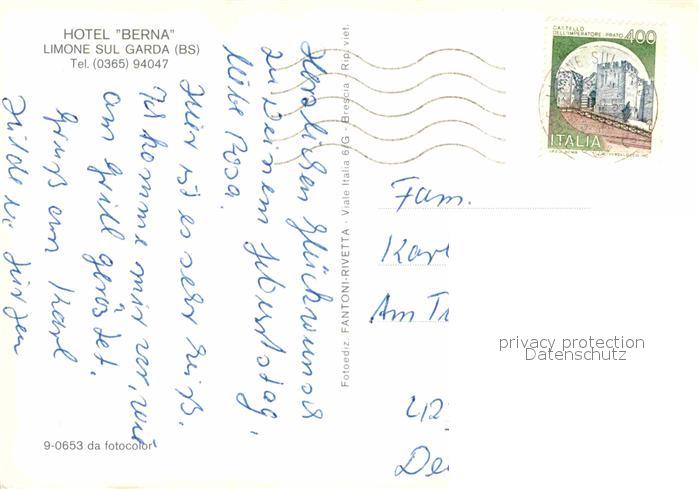 HOTEL "BERNA"
LIMONE SUL GARDA (BS)
Tel. (0365) 94047
Herzlichen Glückwunsch
zu Deinem Geburtstag,
liebe Rosa.
Hier ist es sehr heiß.
Ich komme mir vor, wie
am Grill geröstet.
Gruß an Karl
Hilde u. Jürgen
9-0653 da fotocolor
Fotoediz. FANTONI-RIVETTA - Viale Italia 6/G - Brescia - Rip. viet.
CASTELLO
DELL'IMPERATORE PRATO 400
ITALIA
Fam.
Karl
Am
42
privacy protection
Datenschutz